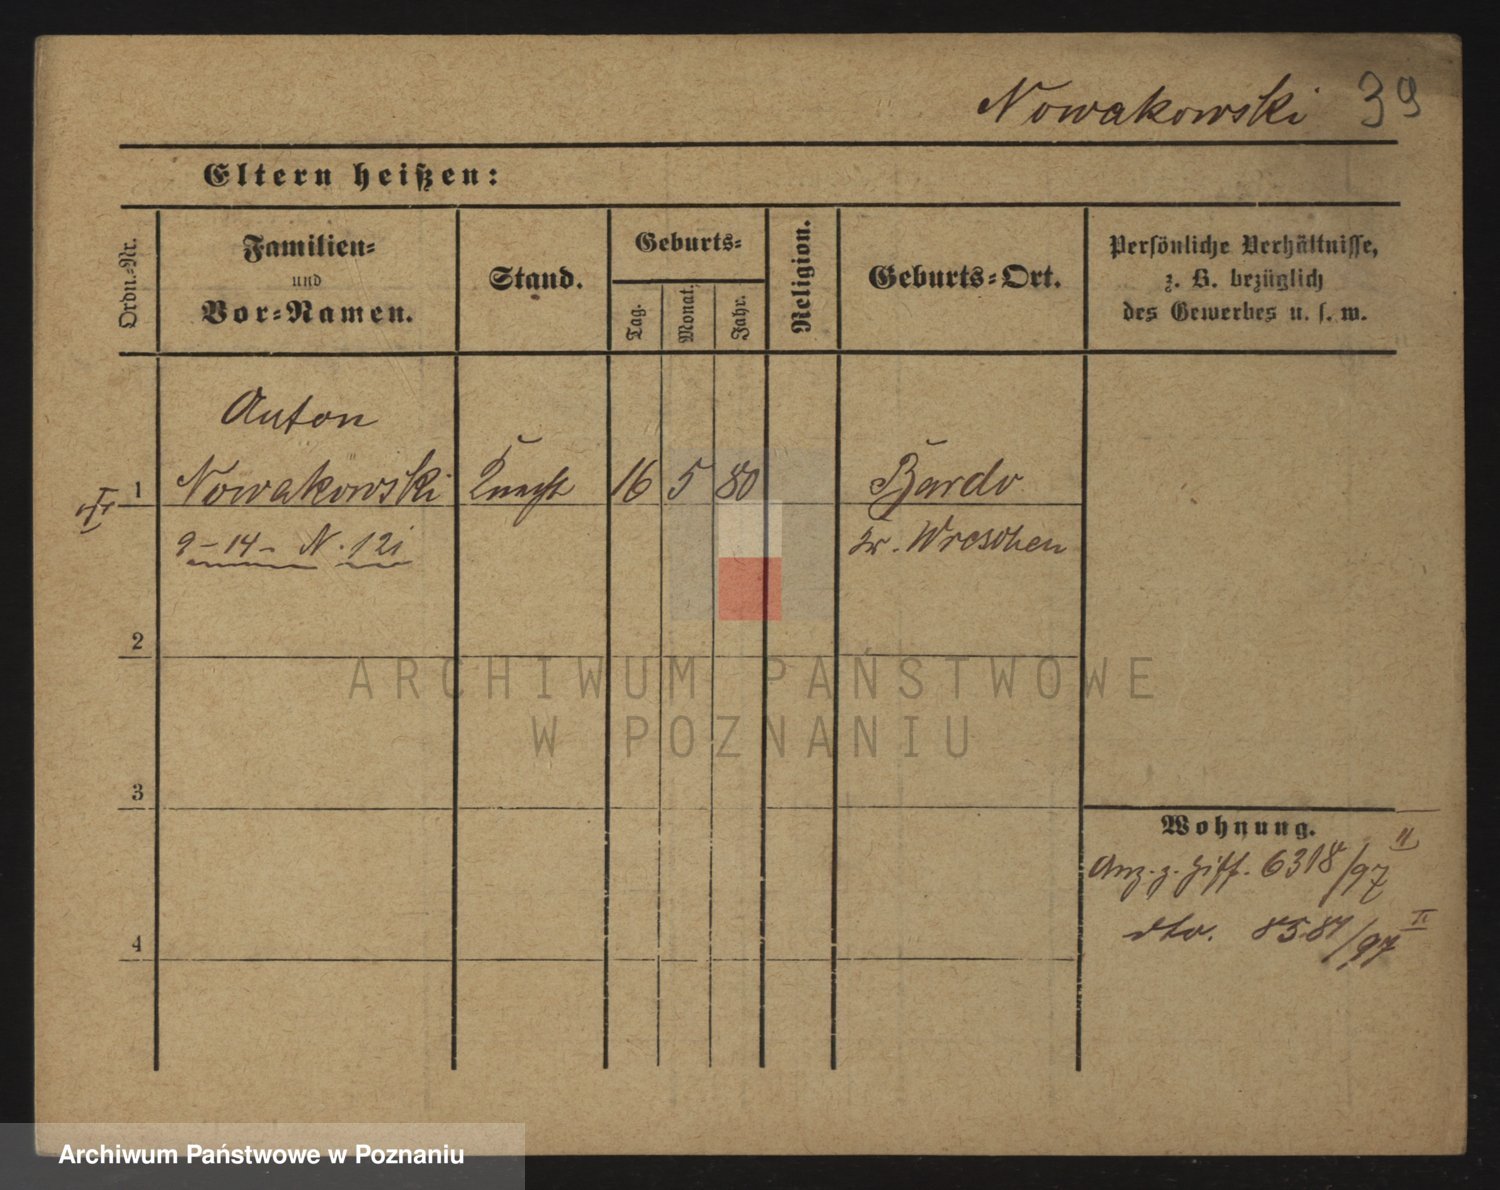 Nowakowski 39
Eltern heißen:
Ordn.-Nr.
Familien-
und
Vor-Namen.
Stand.
Geburts-
Tag.
Monat.
Jahr.
Religion.
Geburts-Ort.
Persönliche Verhältnisse,
z. B. bezüglich
des Gewerbes u. s. w.
Anton
1 Nowakowski Knecht 16 5 80 Bardo
9-14- N. 12i Kr. Wreschen
2
3
4
Wohnung.
Anz. z. Ziff. 6318/97 II
dto. 8587/97 II
ARCHIWUM PAŃSTWOWE
W POZNANIU
Archiwum Państwowe w Poznaniu